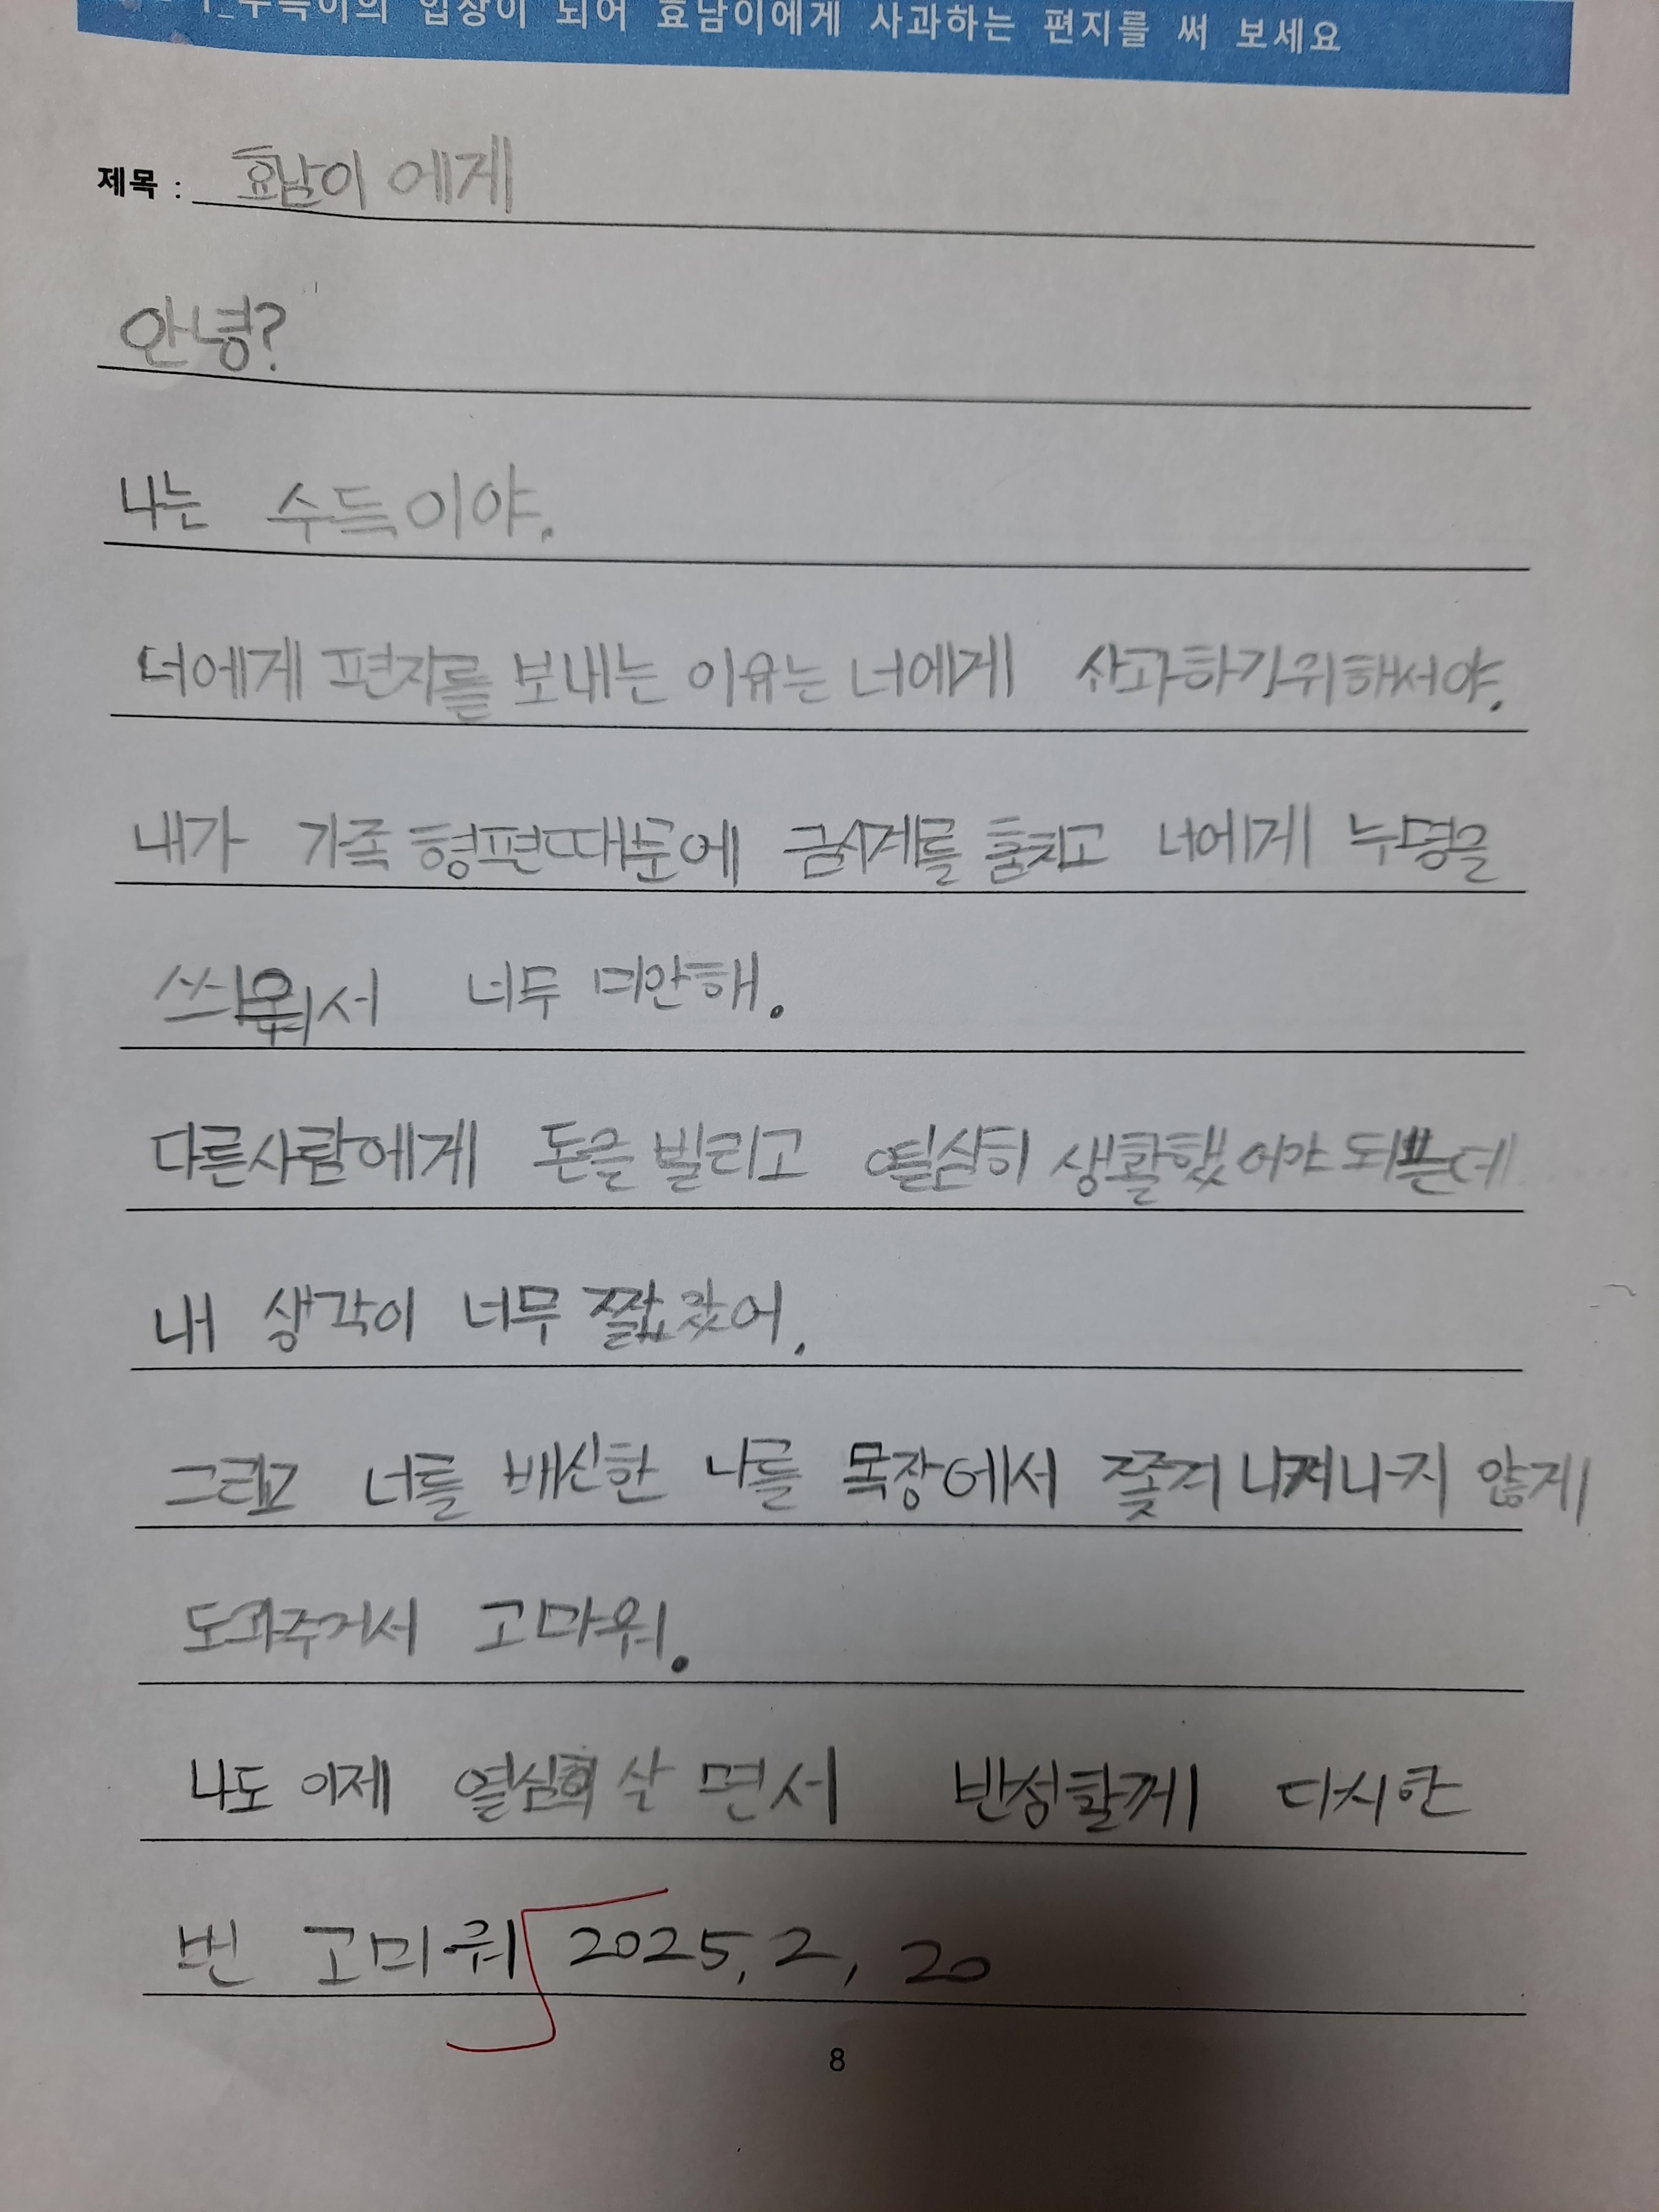 수득이의 입장이 되어 효남이에게 사과하는 편지를 써 보세요
제목 : 효남이 에게
안녕?
나는 수득이야.
너에게 편지를 보내는 이유는 너에게 사과하기위해서야.
내가 가족 형편때문에 금시계를 훔치고 너에게 누명을
씌워서 너무 미안해.
다른사람에게 돈을 빌리고 열심히 생활했어야 되는데
내 생각이 너무 짧았어.
그리고 너를 배신한 나를 목장에서 쫓겨 나지 않게
고마워.
나도 이제 열심히 살 면서 반성할께 다시한
번 고마워 2025, 2, 20
8